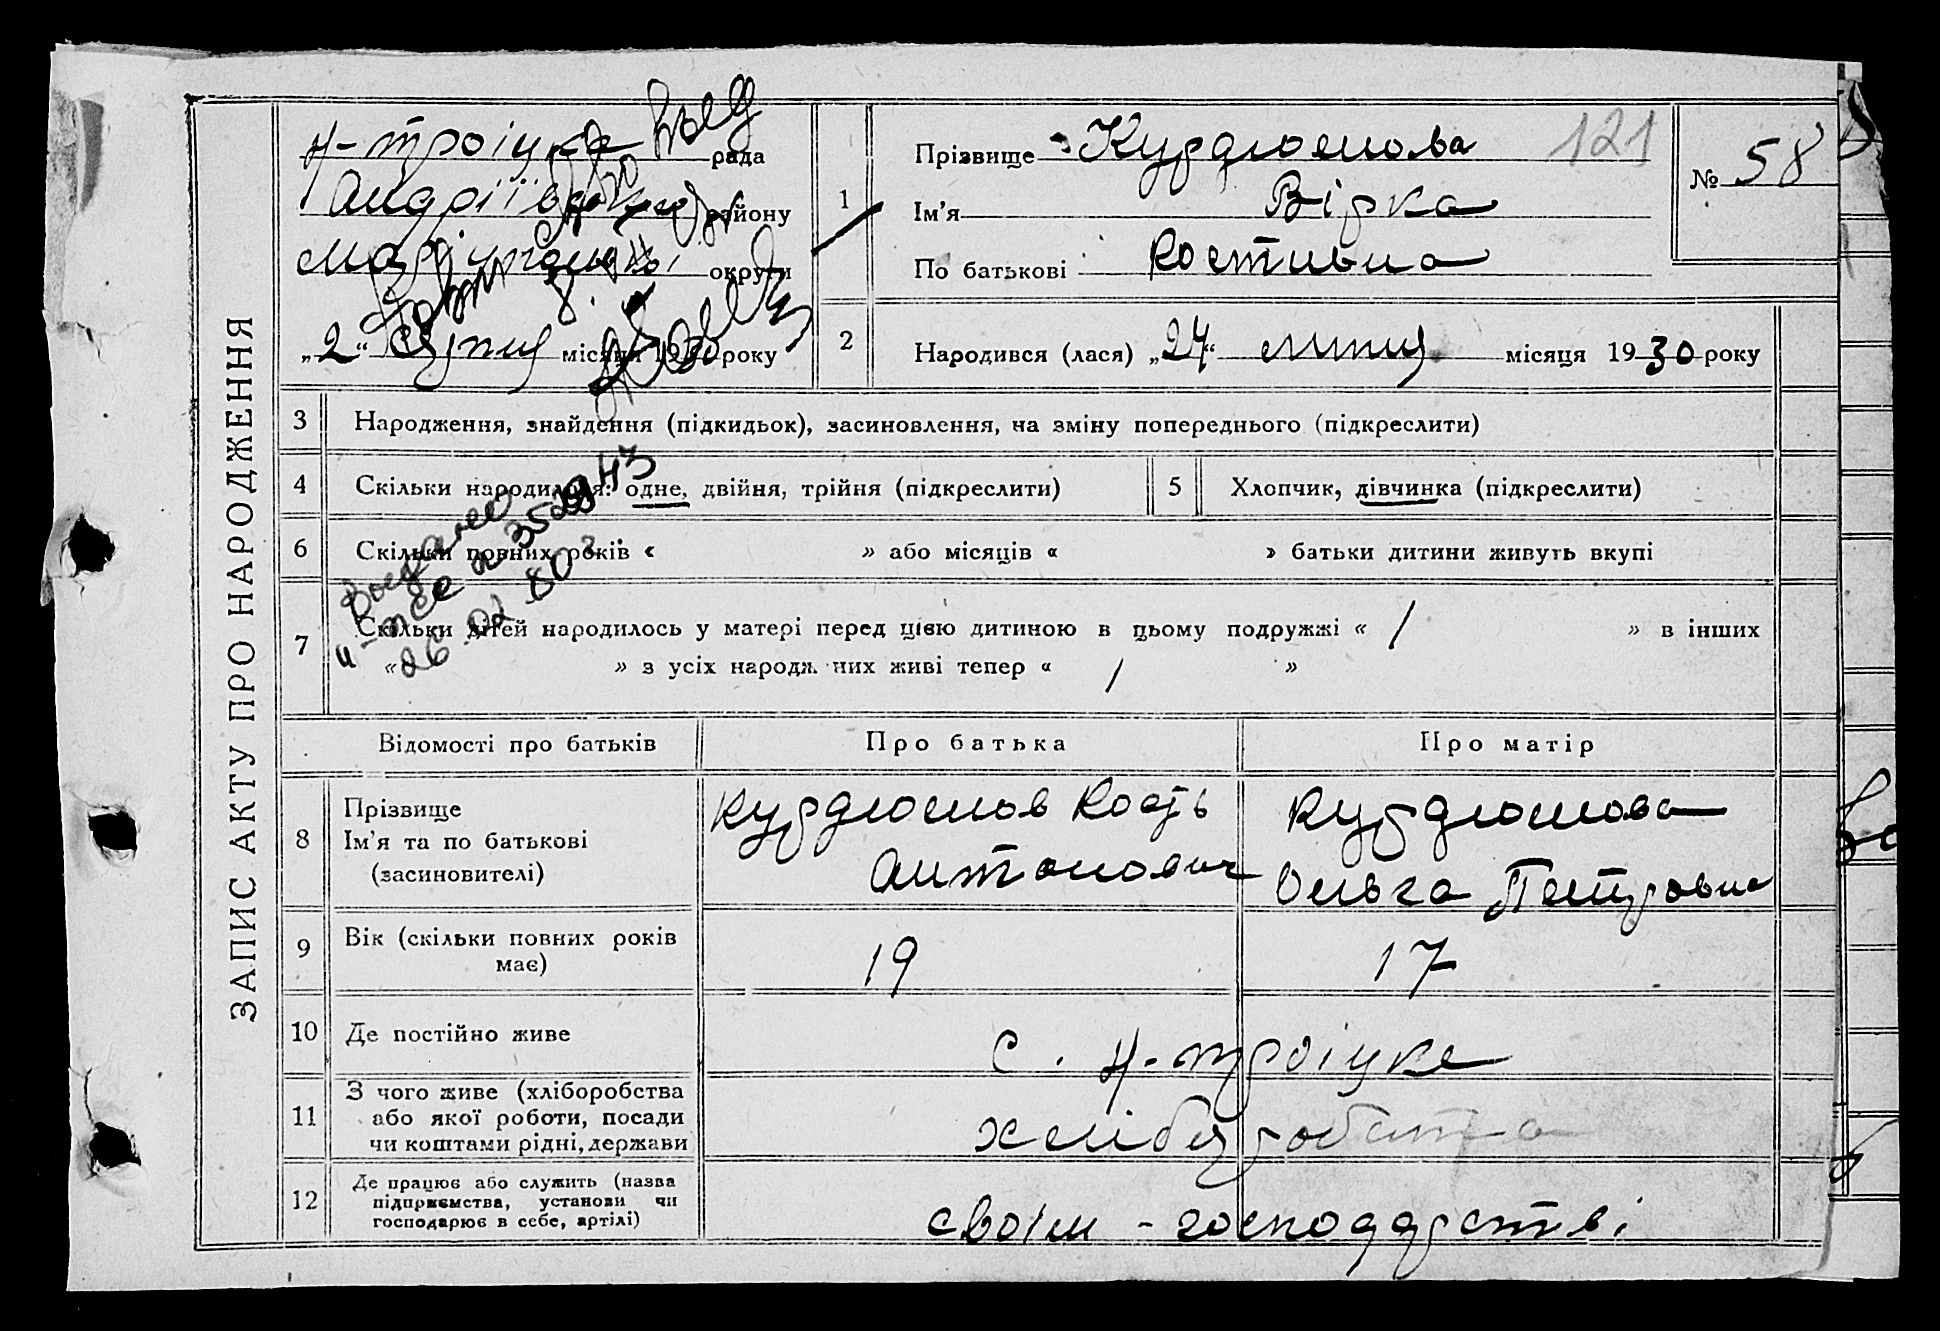 ЗАПИС АКТУ ПРО НАРОДЖЕННЯ
Н-Троіцка рада
Андріївського району
Маріупільськ. округи
„2“ серпня місяця 1930 року
1
Прізвище Курдюмова 121
№ 58
Ім'я Вірка
По батькові Костивна
2
Народився (лася) „24“ липня місяця 1930 року
3 Народження, знайдення (підкидьок), засиновлення, на зміну попереднього (підкреслити)
4 Скільки народилося: одне, двійня, трійня (підкреслити)
5 Хлопчик, дівчинка (підкреслити)
6 Скільки повних років « » або місяців « » батьки дитини живуть вкупі
7 Скільки дітей народилось у матері перед цією дитиною в цьому подружжі « / » в інших
« » з усіх народж них живі тепер « / »
Выдано
п-нсе № 352943
26-02-80 г.
Відомості про батьків Про батька Про матір
8 Прізвище
Ім'я та по батькові
(засиновителі)
Курдюмов Кость
Антонович
Курдюмова
Ольга Петровна
9 Вік (скільки повних років має)
19 17
10 Де постійно живе
с. Н-Троіцке
11 З чого живе (хліборобства
або якої роботи, посади
чи коштами рідні, держави
хлібаробства
12 Де працює або служить (назва
підприємства, установи чи
господарює в себе, артілі)
своім - господарстві